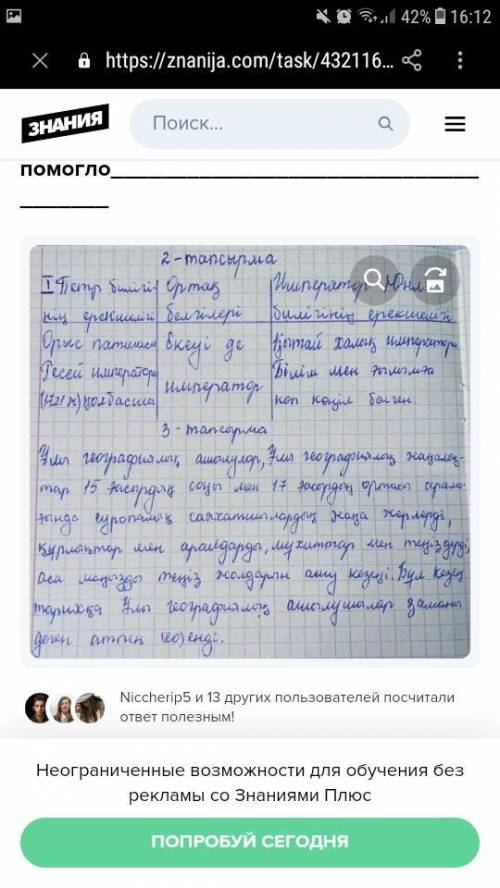 42% 16:12
https://znanija.com/task/432116...
ЗНАНИЯ
Поиск...
помогло____________________________________
_______
2-тапсырма
I Петр билігі- Ортақ Император
нің ерекшелігі белгілері билігінің ерекшелігі
Орыс патшасы Екеуі де Қытай халық императоры
Ресей императоры император Білім мен ғылымға
(1721 ж) қолбасшы көп көңіл бөлген.
3-тапсырма
Ұлы географиялық ашылулар, Ұлы географиялық жаңалық-
тар 15 ғасырдың соңы мен 17 ғасырдың ортасы арала-
ғында еуропалық саяхатшылардың жаңа жерлерді,
құрлықтар мен аралдарды, мұхиттар мен теңіздерді,
аса маңызды теңіз жолдарын ашу кезеңі. Бұл кезең
тарихқа Ұлы географиялық ашылушылар заманы
деген атпен енді.
Niccherip5 и 13 других пользователей посчитали
ответ полезным!
Неограниченные возможности для обучения без
рекламы со Знаниями Плюс
ПОПРОБУЙ СЕГОДНЯ